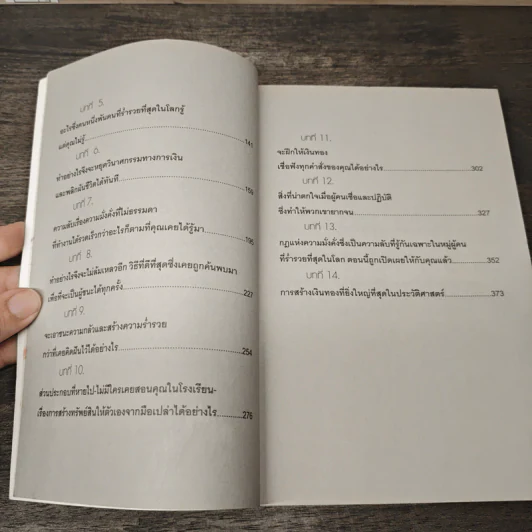 บทที่ 5.
อะไรซึ่งคนหนึ่งพันคนที่ร่ำรวยที่สุดในโลกรู้
แต่คุณไม่รู้ 141
บทที่ 6.
ทำอย่างไรจึงจะหยุดวินาศกรรมทางการเงิน
และพลิกผันชีวิตได้ทันที 159
บทที่ 7.
ความลับเรื่องความมั่งคั่งที่ไม่ธรรมดา
ที่ทำงานได้รวดเร็วกว่าอะไรก็ตามที่คุณเคยได้รู้มา 196
บทที่ 8.
ทำอย่างไรจึงจะไม่ล้มเหลวอีก วิธีที่ดีที่สุดซึ่งเคยถูกค้นพบมา
เพื่อที่จะเป็นผู้ชนะได้ทุกครั้ง 227
บทที่ 9.
จะเอาชนะความกลัวและสร้างความร่ำรวย
กว่าที่เคยคิดฝันไว้ได้อย่างไร 254
บทที่ 10.
ส่วนประกอบที่หายไป-ไม่มีใครเคยสอนคุณในโรงเรียน-
เรื่องการสร้างทรัพย์สินให้ตัวเองจากมือเปล่าได้อย่างไร 276
บทที่ 11.
จะฝึกให้เงินทอง
เชื่อฟังทุกคำสั่งของคุณได้อย่างไร 302
บทที่ 12.
สิ่งที่น่าตกใจเมื่อผู้คนเชื่อและปฏิบัติ
ซึ่งทำให้พวกเขายากจน 327
บทที่ 13.
กฎแห่งความมั่งคั่งซึ่งเป็นความลับที่รู้กันเฉพาะในหมู่ผู้คน
ที่ร่ำรวยที่สุดในโลก ตอนนี้ถูกเปิดเผยให้กับคุณแล้ว 352
บทที่ 14.
การสร้างเงินทองที่ยิ่งใหญ่ที่สุดในประวัติศาสตร์ 373